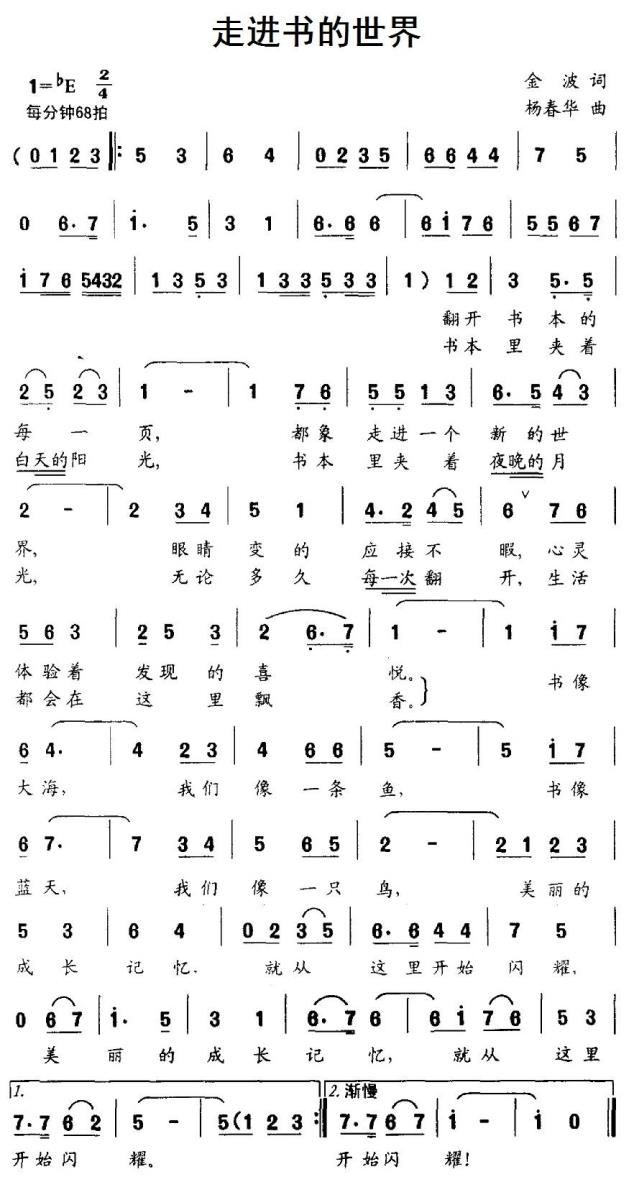 走进书的世界
1=♭E 2/4
金 波 词
每分钟68拍
杨春华 曲
( 0 1 2 3 ‖: 5 3 | 6 4 | 0 2 3 5 | 6 6 4 4 | 7 5 |
0 6· 7 | i· 5 | 3 1 | 6· 6 6 | 6 i 7 6 | 5 5 6 7 |
i 7 6 5432 | 1 3 5 3 | 1 3 3 5 3 3 | 1 ) 1 2 | 3 5· 5 |
翻开 书 本 的
书本 里 夹 着
2 5 2 3 | 1 - | 1 7 6 | 5 5 1 3 | 6· 5 4 3 |
每 一 页, 都象 走进一个 新 的 世
白天的阳 光, 书本 里夹 着 夜晚的月
2 - | 2 3 4 | 5 1 | 4· 2 4 5 | 6 ∨ 7 6 |
界, 眼睛 变 的 应接不 暇, 心灵
光, 无论 多 久 每一次翻 开, 生活
5 6 3 | 2 5 3 | 2 6· 7 | 1 - | 1 i 7 |
体验着 发现 的 喜 悦。 书像
都会在 这 里 飘 香。
6 4· | 4 2 3 | 4 6 6 | 5 - | 5 i 7 |
大海, 我们 像 一条 鱼, 书像
6 7· | 7 3 4 | 5 6 5 | 2 - | 2 1 2 3 |
蓝天, 我们 像 一只 鸟, 美丽的
5 3 | 6 4 | 0 2 3 5 | 6· 6 4 4 | 7 5 |
成 长 记 忆. 就从 这里开始 闪 耀,
0 6 7 | i· 5 | 3 1 | 6· 7 6 | 6 i 7 6 | 5 3 |
美 丽 的 成 长 记 忆, 就从 这里
1. 2. 渐慢
7· 7 6 2 | 5 - | 5 ( 1 2 3 :‖ 7· 7 6 7 | i - | i 0 ‖
开始闪 耀。 开始闪 耀!